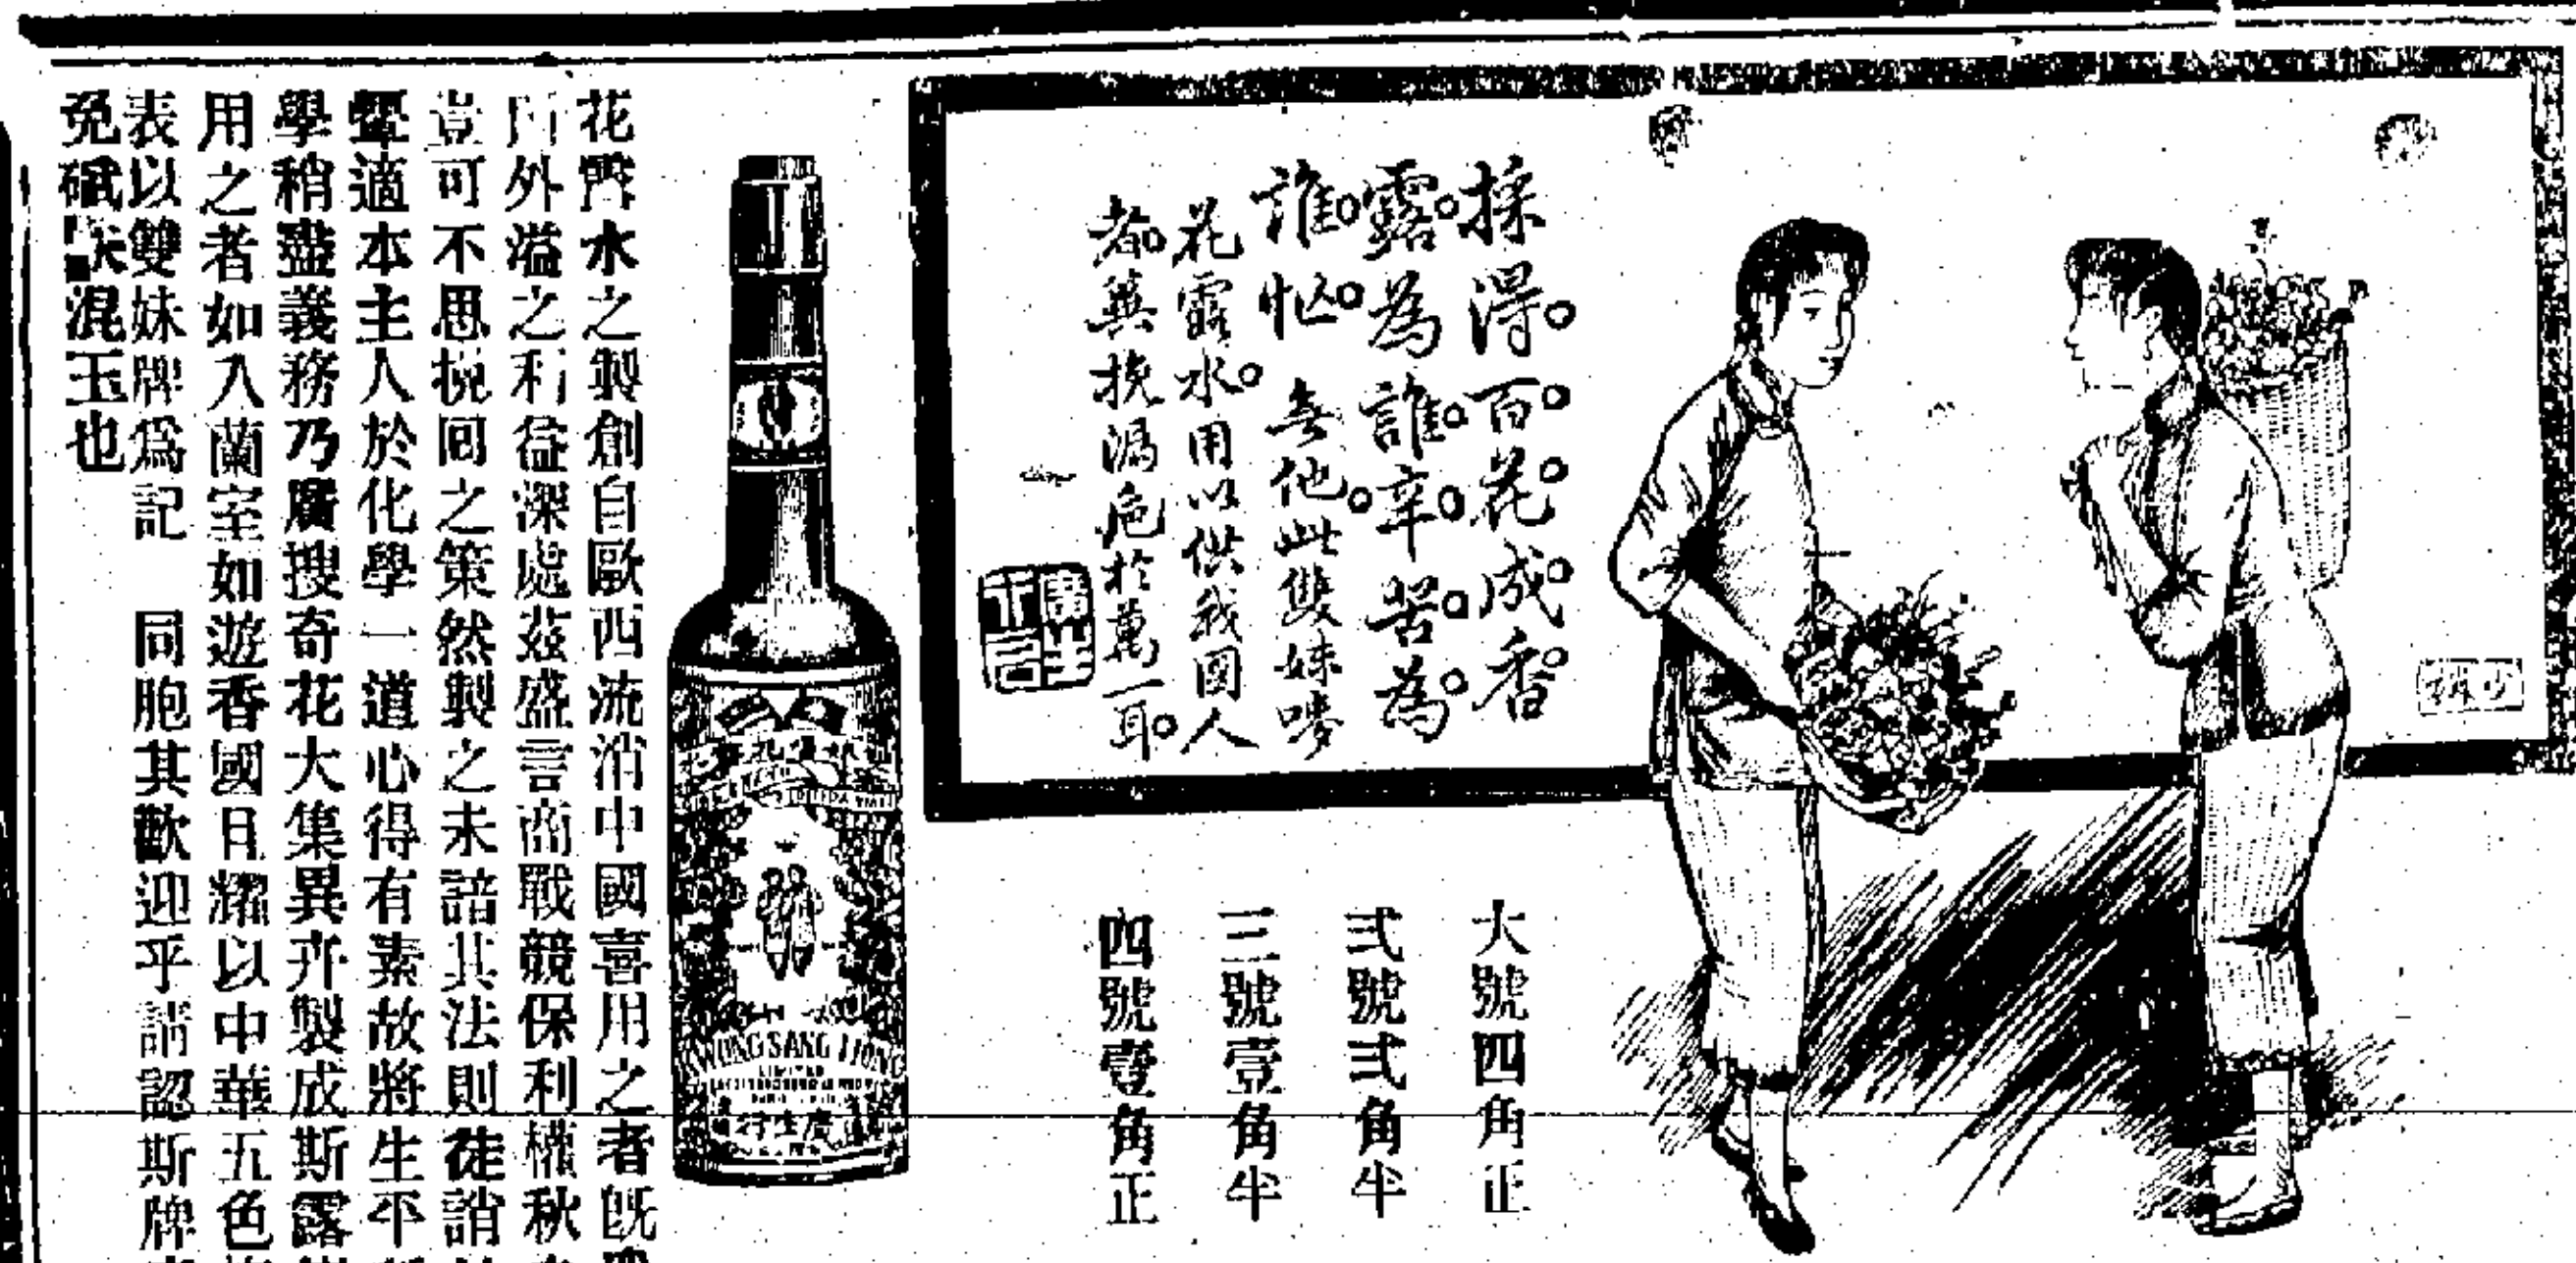 採得百花成香
露為誰辛苦為
誰忙 無他此雙妹嘜
花露水用以供我國人
都兼挽漏卮於萬一耳
廣生
大號四角正
弍號弍角半
三號壹角半
四號壹角正
KWONG SANG HONG
LIMITED
廣生行
花露水之製創自歐西流消中國喜用之者旣
外溢之利益深處茲盛言商戰競保利權秋
豈可不思挽囘之策然製之未諳其法則徒誚
顰適本主人於化學一道心得有素故將生平
學稍盡義務乃廣搜奇花大集異卉製成斯露
用之者如入蘭室如遊香國目耀以中華五色
表以雙妹牌爲記 同胞其歡迎乎請認斯牌
免碔砆混玉也